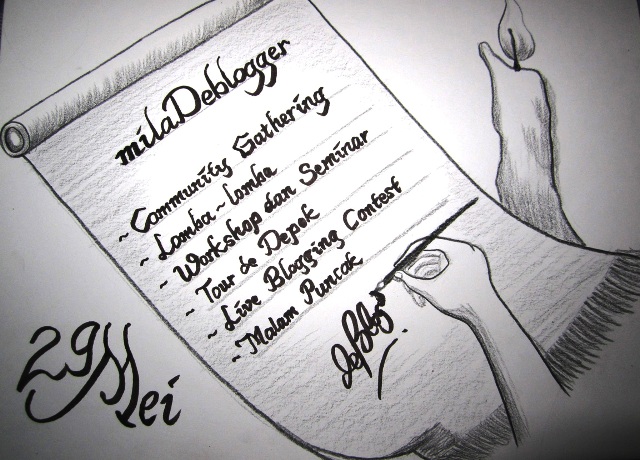 milaDeblogger
~ Community Gathering
~ Lomba - lomba
~ Workshop dan Seminar
~ Tour de Depok
~ Live Blogging Contest
~ Malam Puncak
29 Mei